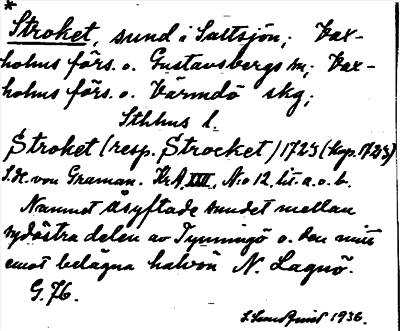 *
Stroket, sund i Saltsjön; Vax-
holms förs. o. Gustavsbergs m; Vax-
holms förs. o. Värmdö skg;
Sthlms l.
Stroket (resp. Strocket) 1725 (kop. 1725)
S. H. von Graman. Kr A XIII, No 12, lit. a. o. b.
Namnet åsyftade sundet mellan
sydöstra delen av Tynningö o. den mitt
emot belägna halvön N. Lagnö.
G. 76.
1936.